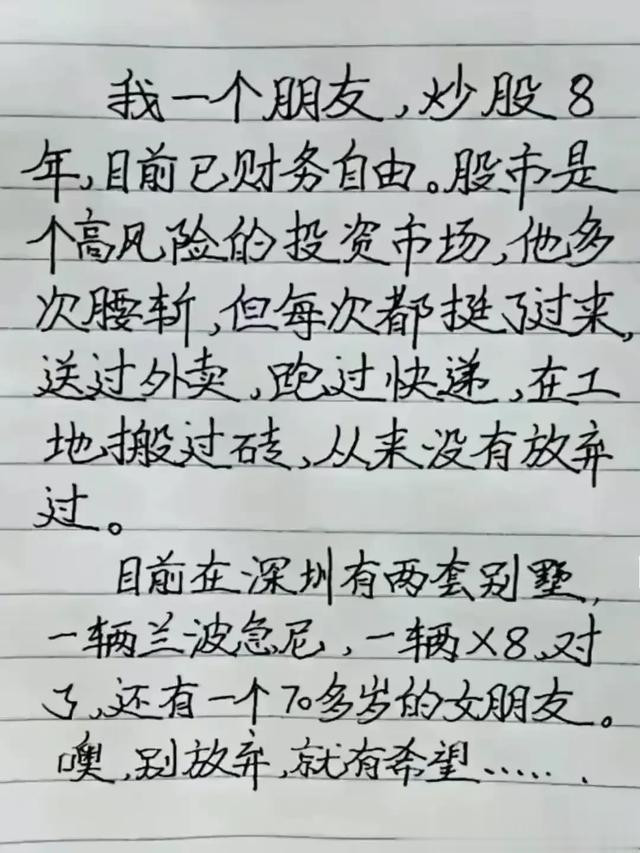 我一个朋友,炒股8
年,目前已财务自由。股市是
个高风险的投资市场,他多
次腰斩,但每次都挺了过来,
送过外卖,跑过快递,在工
地搬过砖,从来没有放弃
过。
目前在深圳有两套别墅,
一辆兰波急尼,一辆X8,对
了,还有一个70多岁的女朋友。
噢,别放弃,就有希望......